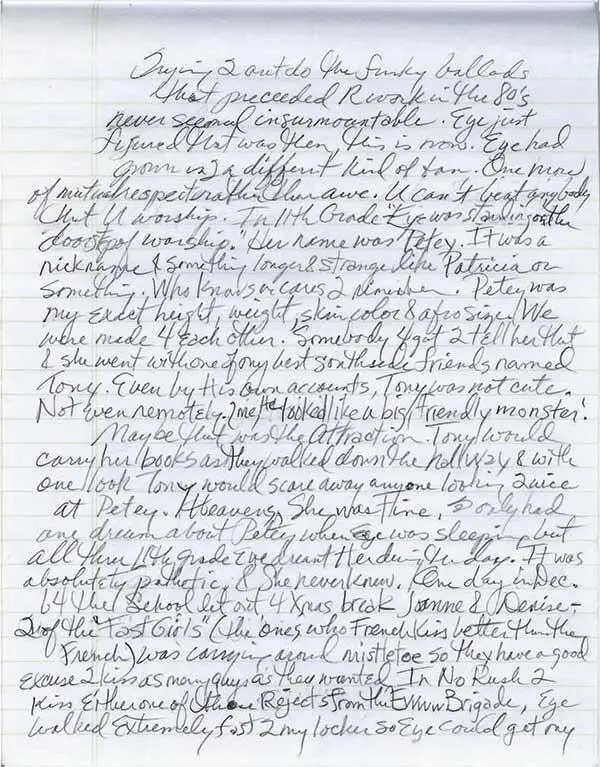 Trying 2 outdo the funky ballads
that preceeded R work in the 80's
never seemed insurmountable. Eye just
figured that was then, this is now. Eye had
grown in2 a different kind of fan. One more
of mutual respect rather than awe. U can't beat anybody
that U worship. In 11th Grade "Eye was standing on the
doorstep of worship." Her name was Petey. It was a
nickname 4 something longer & strange like Patricia or
something. Who knows or cares 2 remember. Petey was
my exact height, weight, skin color & afro size. We
were made 4 each other. Somebody 4got 2 tell her that
& she went with one of my best southside friends named
Tony. Even by His own accounts, Tony was not cute.
Not Even remotely. 2 me, He looked like a big, friendly monster!
Maybe that was the Attraction. Tony would
carry her books as they walked down the hallway & with
one look Tony would scare away anyone looking 2wice
at Petey. Heavens, She was Fine. only had
one dream about Petey when Eye was sleeping but
all thru 10th grade Eye dreamt Her during the day. It was
absolutely pathetic, & She never knew. One day in Dec.
b4 the School let out 4 Xmas break Joanne & Denise -
2 of the "Fast Girls" (the ones who French Kiss better than the
French) was carrying around mistletoe so they have a good
excuse 2 kiss as many guys as they wanted. In No Rush 2
Kiss Either one of these Rejects from the Ewww Brigade, Eye
walked Extremely fast 2 my locker so Eye could get my